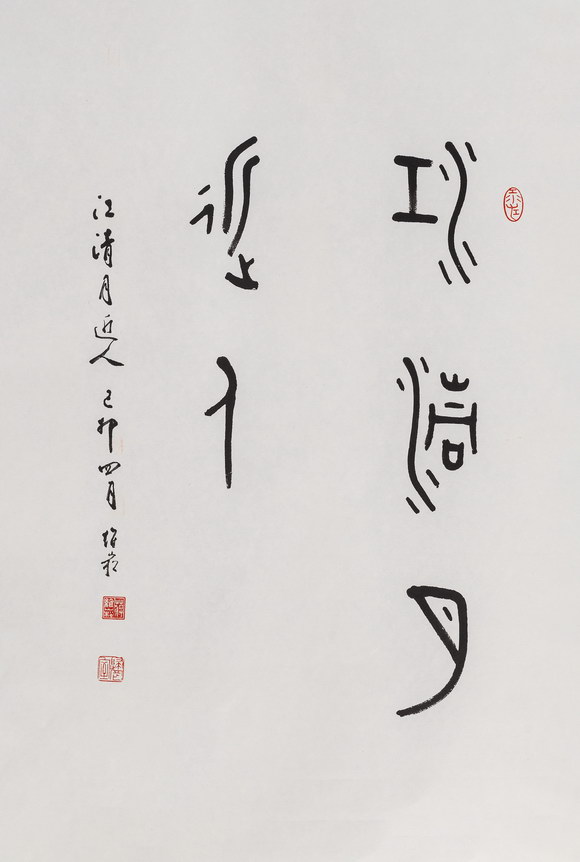 江清月
近人
江清月近人 己卯四月